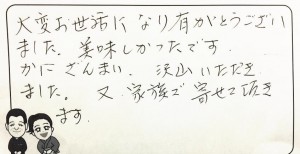 大変お世話になり有がとうござい
ました。美味しかったです。
かにざんまい、沢山いただき
ました。又、家族で寄せて頂き
ます。